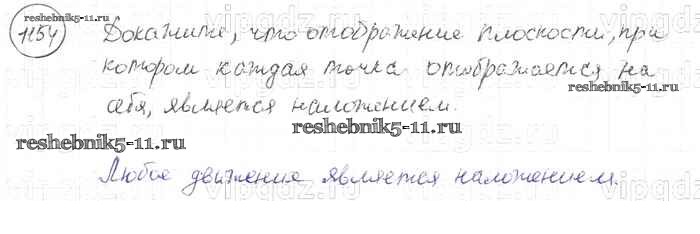 reshebnik5-11.ru
1154 Докажите, что отображение плоскости, при
котором каждая точка отображается на
себя, является наложением.
reshebnik5-11.ru
reshebnik5-11.ru
reshebnik5-11.ru
Любое движение является наложением.
vipgdz.ru
vipgdz.ru
vipgdz.ru
vipgdz.ru